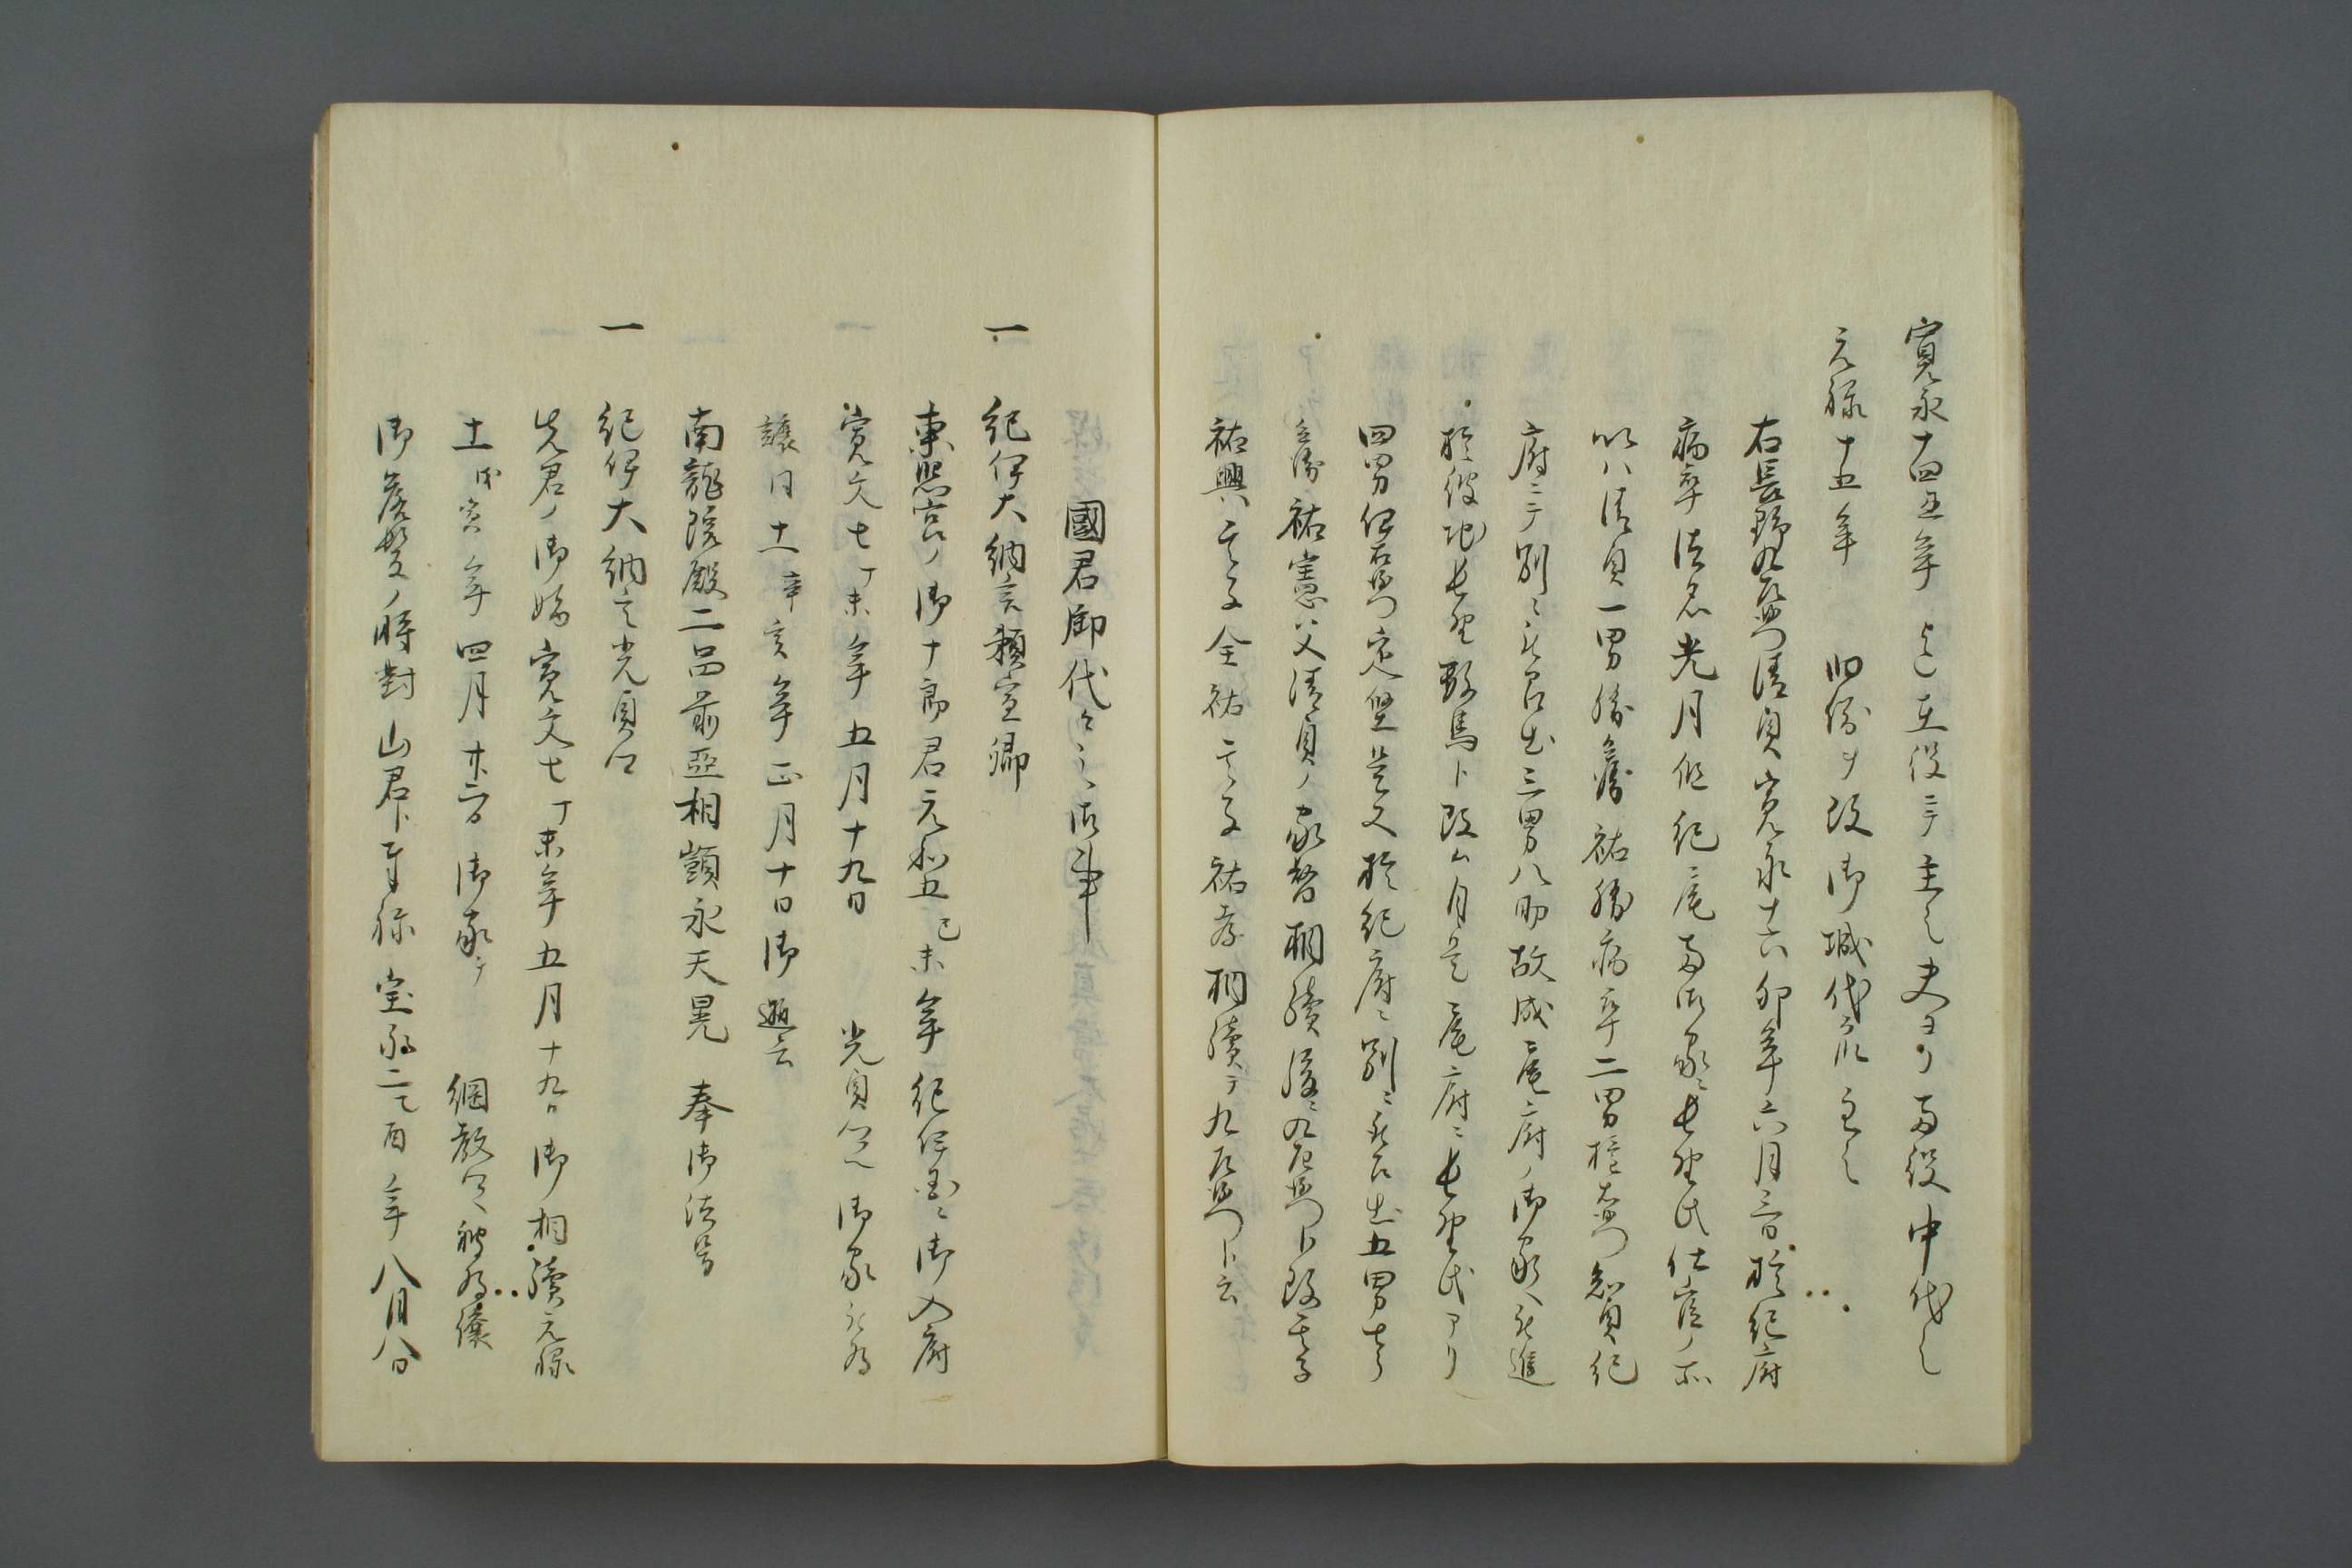 寛永十四五年迄在役ニテ主之夫ヨリ両役中代之
元禄十五年 旧俗ヲ改御城代衆主之
右長野九左衛門清貞寛永十六卯年六月三日於紀府
病卒法名光月但紀尾両御家ニ長野氏仕官ノ所
以ハ清貞一男 祐勝病卒二男 知貞紀
府ニテ別ニ被召出三男八助故成尾府ノ御家ヘ被進
於彼地長野数馬ト改ム自是尾府ニ長野氏アリ
四男伊右衛門定堅是又於紀府ニ別ニ被召出五男
祐憲ハ父清貞ノ家督相続後ニ九左衛門ト改其子
祐興其子全祐其子祐孝相続テ九左衛門ト云
國君御代々之御事
一 紀伊大納言頼宣卿
東照宮ノ御十郎君元和五己未年紀伊国ニ御入府
寛文七丁未年五月十九日 光貞公ヘ御家被為
譲同十一辛亥年正月十日御逝去
南龍院殿二品前亜相顗永天晃 奉御法号
一 紀伊大納言光貞公
先君ノ御嫡寛文七丁未年五月十九日御相續元禄
十一戊寅年四月廿二日御家ヲ 綱教公ヘ被為讓
御薙髪ノ時對山君ト奉称宝永二乙酉年八月八日